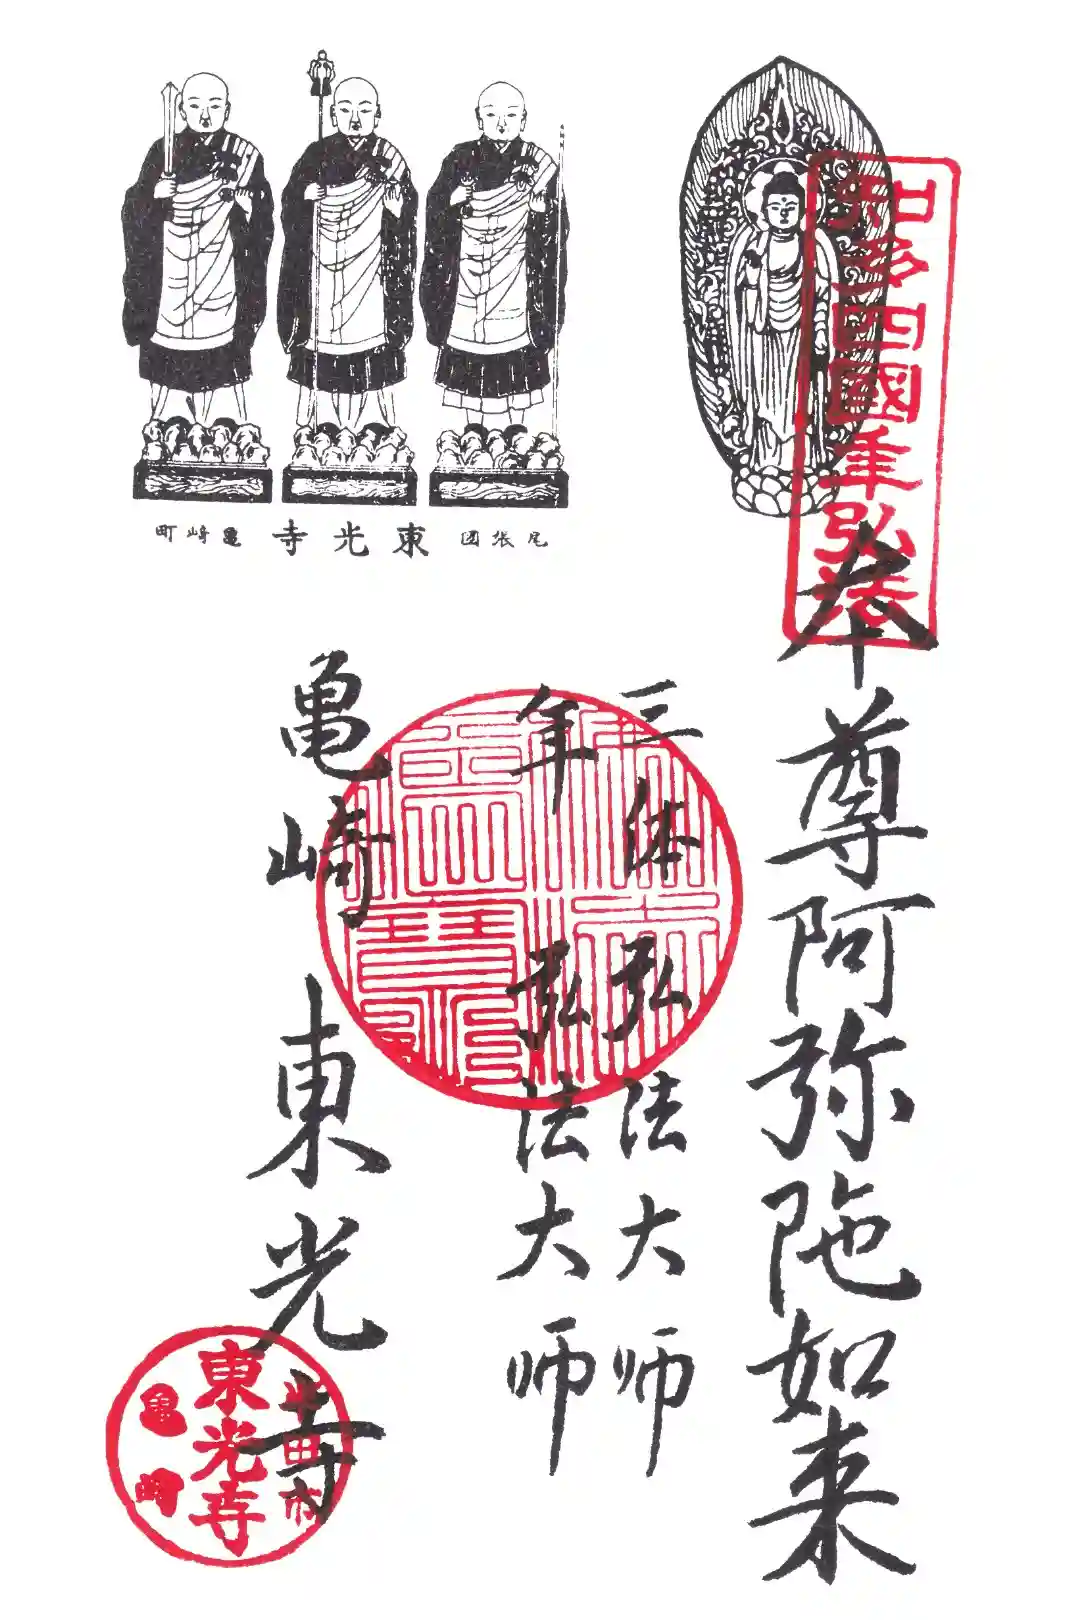 知多四國年弘法
本尊阿弥陀如来
三体弘法大師
年弘法大師
亀崎 東光寺
尾張国 東光寺 亀崎町
半田市
東光寺
亀崎